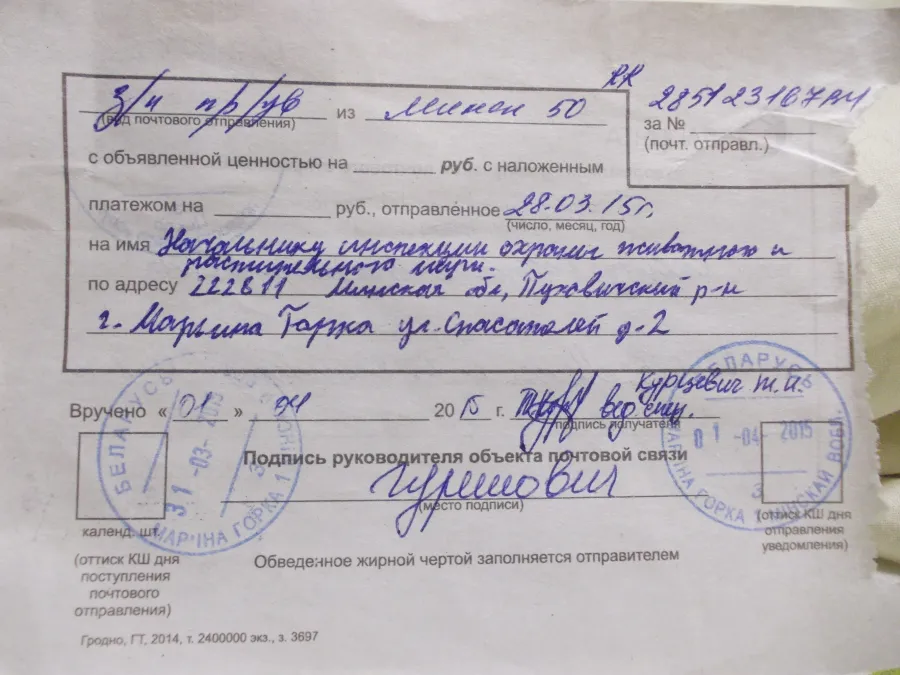 RR
з/п пр/ув из Минск 50 285123167 за №
(вид почтового отправления) (почт. отправл.)
с объявленной ценностью на руб. с наложенным
платежом на руб., отправленное 28.03.15г.
(число, месяц, год)
на имя Начальнику инспекции охраны животного и
растительного мира.
по адресу 222811 Минская обл, Пуховичский р-н
г. Марьина Горка ул. Спасателей д-2
БЕЛАРУСЬ
Курцевич
Вручено « 01 » 04 20 15 г. вед. спец.
подпись получателя
31 -03- 2015
01 -04- 2015
3
МАР'ІНА ГОРКА 1 МІНСКАЙ ВОБЛ.
Подпись руководителя объекта почтовой связи
(место подписи)
календ. шт.
БЕЛАРУСЬ
МАР'ІНА ГОРКА 1
3
(оттиск КШ дня
поступления
почтового
отправления)
Обведенное жирной чертой заполняется отправителем
(оттиск КШ дня
отправления
уведомления)
Гродно, ГТ, 2014, т. 2400000 экз., з. 3697